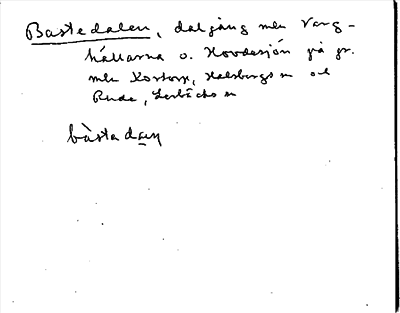 Bastedalen, dalgång mel Varg-
hällarna o. Hovdesjön på gr.
mel Kortorp, Halsbergs sn och
Rude, Lerbäcks sn
bàstadaɲ